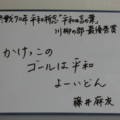 戦70年 平和祈念「平和の言の葉」
川柳の部 最優秀賞
かけっこの
ゴールは平和
よーいどん
藤井麻友